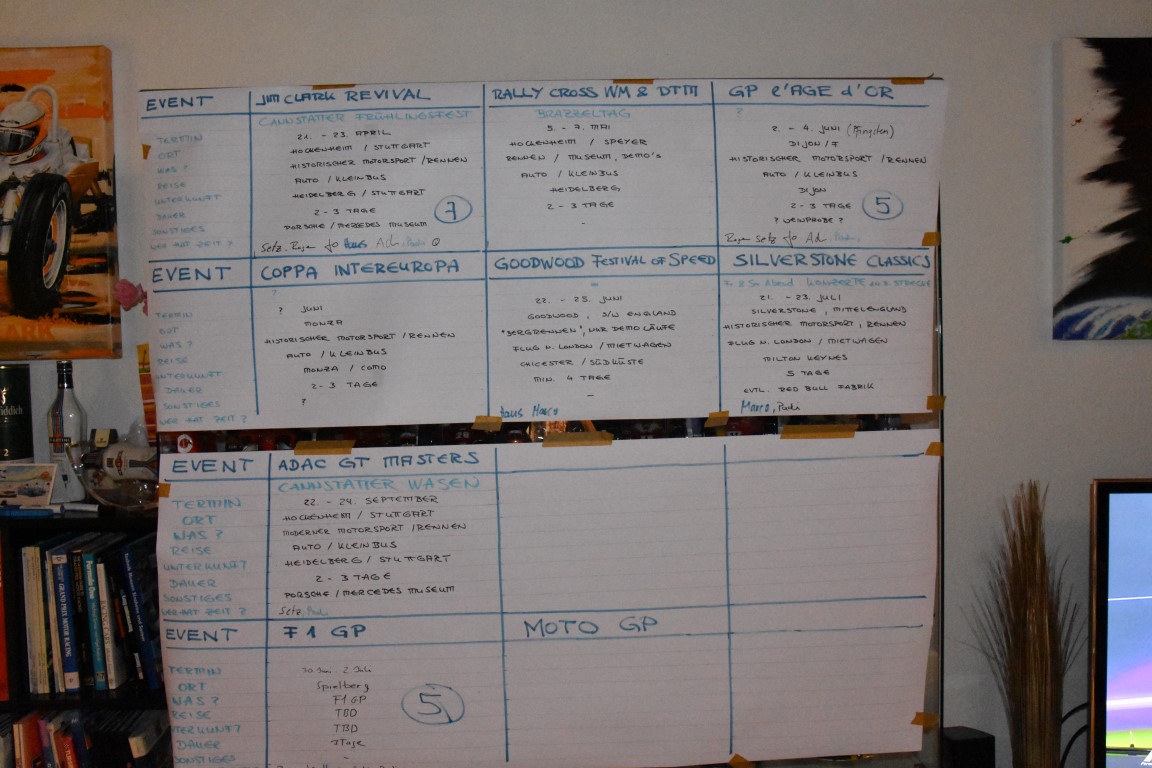 EVENT
JIM CLARK REVIVAL
RALLY CROSS WM & DTM
GP l'AGE d'OR
CANNSTATTER FRÜHLINGSFEST
BRAZZELTAG
?
TERMIN
21. - 23. APRIL
5. - 7. MAI
2. - 4. JUNI (Pfingsten)
ORT
HOCKENHEIM / STUTTGART
HOCKENHEIM / SPEYER
DIJON / F
WAS ?
HISTORISCHER MOTORSPORT / RENNEN
RENNEN / MUSEUM, DEMO'S
HISTORISCHER MOTORSPORT / RENNEN
REISE
AUTO / KLEINBUS
AUTO / KLEINBUS
AUTO / KLEINBUS
UNTERKUNFT
HEIDELBERG / STUTTGART
HEIDELBERG
DIJON
DAUER
2 - 3 TAGE
7
2 - 3 TAGE
2 - 3 TAGE
5
SONSTIGES
PORSCHE / MERCEDES MUSEUM
-
? WEINPROBE ?
WER HAT ZEIT ?
Setz. Jo Hans
Setz Jo
EVENT
COPPA INTEREUROPA
GOODWOOD FESTIVAL OF SPEED
SILVERSTONE CLASSICS
?
TERMIN
? JUNI
22. - 25. JUNI
21. - 23. JULI
ORT
MONZA
GOODWOOD, S/W ENGLAND
SILVERSTONE, MITTELENGLAND
WAS ?
HISTORISCHER MOTORSPORT / RENNEN
"BERGRENNEN", NUR DEMO LÄUFE
HISTORISCHER MOTORSPORT, RENNEN
REISE
AUTO / KLEINBUS
FLUG N. LONDON / MIETWAGEN
FLUG N. LONDON / MIETWAGEN
UNTERKUNFT
MONZA / COMO
CHICESTER / SÜDKÜSTE
MILTON KEYNES
DAUER
2 - 3 TAGE
MIN. 4 TAGE
5 TAGE
SONSTIGES
?
-
EVTL. RED BULL FABRIK
WER HAT ZEIT ?
Hans Marco
Marco,
EVENT
ADAC GT MASTERS
CANNSTATTER WASEN
TERMIN
22. - 24. SEPTEMBER
ORT
HOCKENHEIM / STUTTGART
WAS ?
MODERNER MOTORSPORT / RENNEN
REISE
AUTO / KLEINBUS
UNTERKUNFT
HEIDELBERG / STUTTGART
DAUER
2 - 3 TAGE
SONSTIGES
PORSCHE / MERCEDES MUSEUM
WER HAT ZEIT ?
Setz
EVENT
F1 GP
MOTO GP
TERMIN
30 Jun. - 2 Juli
ORT
Spielberg
WAS ?
F1 GP
REISE
TBD
5
UNTERKUNFT?
TBD
DAUER
3Tage
SONSTIGES
-
GRAND PRIX MOTOR RACING